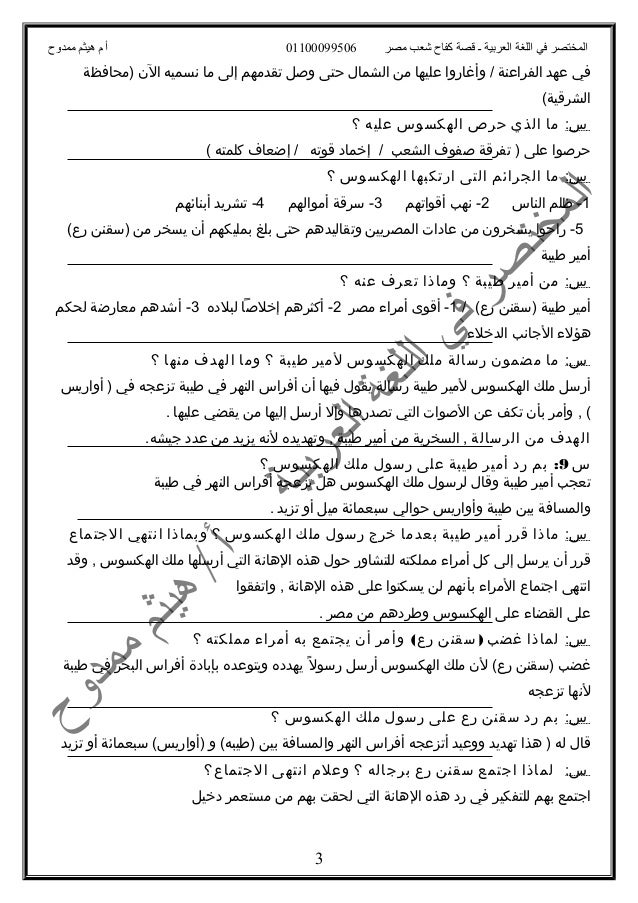 المختصر في اللغة العربية ـ قصة كفاح شعب مصر 01100099506 أ م هيثم ممدوح
في عهد الفراعنة / وأغاروا عليها من الشمال حتى وصل تقدمهم إلى ما نسميه الآن (محافظة
الشرقية)
س: ما الذي حرص الهكسوس عليه ؟
حرصوا على ( تفرقة صفوف الشعب / إخماد قوته / إضعاف كلمته )
س: ما الجرائم التى ارتكبها الهكسوس ؟
1- ظلم الناس 2- نهب أقواتهم 3- سرقة أموالهم 4- تشريد أبنائهم
5- راحوا يسخرون من عادات المصريين وتقاليدهم حتى بلغ بمليكهم أن يسخر من (سقنن رع)
أمير طيبة
س: من أمير طيبة ؟ وماذا تعرف عنه ؟
أمير طيبة (سقنن رع) / 1- أقوى أمراء مصر 2- أكثرهم إخلاصًا لبلاده 3- أشدهم معارضة لحكم
هؤلاء الأجانب الدخلاء
س: ما مضمون رسالة ملك الهكسوس لأمير طيبة ؟ وما الهدف منها ؟
أرسل ملك الهكسوس لأمير طيبة رسالة يقول فيها أن أفراس النهر في طيبة تزعجه في ( أواريس
) , وأمر بأن تكف عن الأصوات التي تصدرها وإلا أرسل إليها من يقضي عليها .
الهدف من الرسالة , السخرية من أمير طيبة , وتهديده لأنه يزيد من عدد جيشه.
س 9: بم رد أمير طيبة على رسول ملك الهكسوس ؟
تعجب أمير طيبة وقال لرسول ملك الهكسوس هل تزعجه أفراس النهر في طيبة
والمسافة بين طيبة وأواريس حوالي سبعمائة ميل أو تزيد .
س: ماذا قرر أمير طيبة بعدما خرج رسول ملك الهكسوس ؟ وبماذا انتهي الاجتماع
قرر أن يرسل إلى كل أمراء مملكته للتشاور حول هذه الإهانة التي أرسلها ملك الهكسوس , وقد
انتهى اجتماع الأمراء بأنهم لن يسكتوا على هذه الإهانة , واتفقوا
على القضاء على الهكسوس وطردهم من مصر .
س: لماذا غضب (سقنن رع) وأمر أن يجتمع به أمراء مملكته ؟
غضب (سقنن رع) لأن ملك الهكسوس أرسل رسولاً يهدده ويتوعده بإبادة أفراس البحر في طيبة
لأنها تزعجه
س: بم رد سقنن رع على رسول ملك الهكسوس ؟
قال له ( هذا تهديد ووعيد أتزعجه أفراس النهر والمسافة بين (طيبه) و (أواريس) سبعمائة أو تزيد
س: لماذا اجتمع سقنن رع برجاله ؟ وعلام انتهى الاجتماع؟
اجتمع بهم للتفكير في رد هذه الإهانة التي لحقت بهم من مستعمر دخيل
المختصر في اللغة العربية أ/ هيثم ممدوح
3